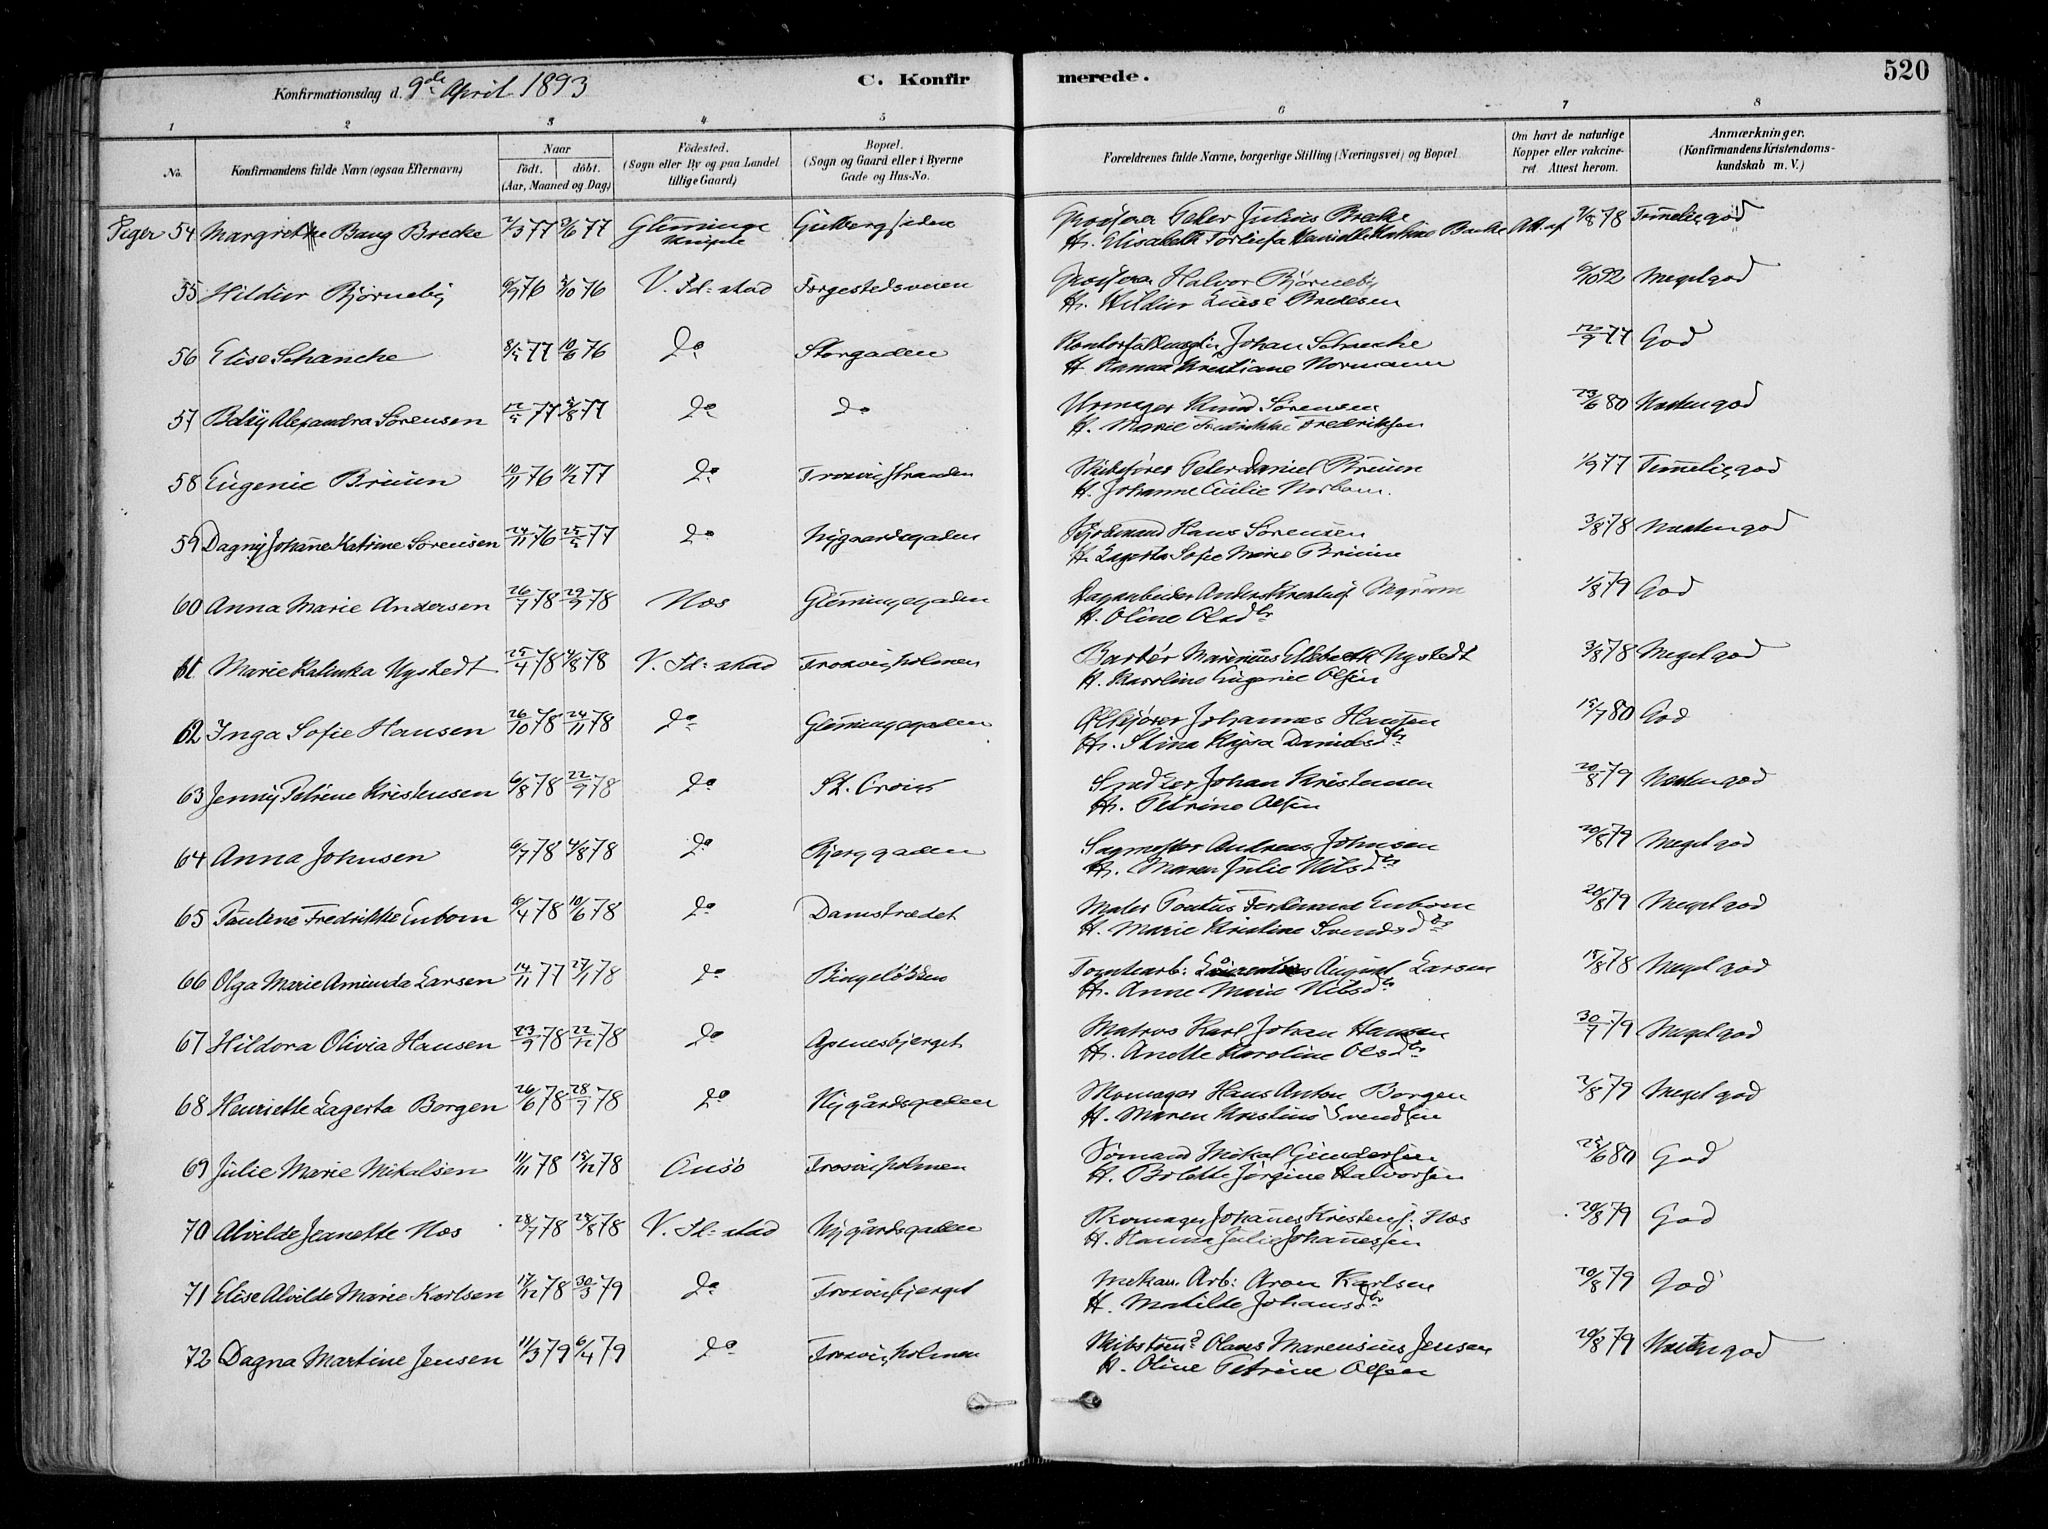 Konfirmationsdag d. 9de April 1893
C. Konfirmerede.
520
1 2 3 4 5 6 7 8
No.
Konfirmandens fulde Navn (ogsaa Efternavn)
Naar
født. døbt.
(Aar, Maaned og Dag)
Fødested.
(Sogn eller By og paa Landet
tillige Gaard)
Bopæl.
(Sogn og Gaard eller i Byerne
Gade og Hus-No.
Forældrenes fulde Navne, borgerlige Stilling (Næringsvei) og Bopæl.
Om havt de naturlige
Kopper eller vakcine-
ret. Attest herom.
Anmærkninger.
(Konfirmandens Kristendoms-
kundskab m. V.)
Piger 54 Margrethe Bang Brecke 2/3 77 Peter Julius Brecke 2/8 78 Temmelig god
H. Elisabeth
55 Hildur Bjørneby 6/9 76 3/10 76 V. Fd:stad Torgestedsveien Halvor Bjørneby 6/10 92 Meget god
H. Hildur Luise Bredesen
56 Elise Schancke 8/5 77 10/6 76 Do Storgaden Johan Schancke 12/9 77 God
H. Hanna Kristiane Normann
57 Betsy Alexandra Sørensen 12/5 77 5/8 77 Do Do Urmager Knud Sørensen 23/6 80 Næsten god
H. Marie Fredrikke Fredriksen
58 Eugenie Bruun 10/11 76 11/2 77 Do Trosvigstranden Skibsfører Peter Daniel Bruun 1/9 77 Temmelig god
H. Johanne Cecilie
59 Dagny Johanne Katrine Sørensen 24/11 76 25/5 77 Do Nygaardsgaden Hans Sørensen 3/8 78 Næsten god
H. Lagerta Sofie Marie Bruun
60 Anna Marie Andersen 26/7 78 29/9 78 Næs Glemmingegaden Anders 1/8 79 God
H. Oline Olsdtr
61 Marie Katinka Nystedt 25/4 78 4/8 78 V. Fd:stad Trosvigholmen Marinius Nystedt 3/8 78 Meget god
H. Karoline Eugenie Olsen
62 Inga Sofie Hansen 26/10 78 24/11 78 Do Glemmingegaden Johannes Hansen 15/7 80 God
H. Stina Kajsa Danielsdtr
63 Jenny Petrine Kristensen 6/8 78 22/9 78 Do St. Croix Johan Kristensen 20/8 79 Næsten god
H. Petrine Olsen
64 Anna Johnsen 6/7 78 4/8 78 Do Bjerggaden Sagmester Andreas Johnsen 20/8 79 Meget god
H. Maren Julie Nilsdtr
65 Pauline Fredrikke Enbom 6/4 78 10/6 78 Do Damstrædet Maler Pontus Ferdinand Enbom 20/8 79 Meget god
H. Marie Kristine Svendsdtr
66 Olga Marie Aminda Larsen 14/11 77 27/1 78 Do Bingeløkken Tomtearb: August Larsen 15/8 78 Meget god
H. Anne Marie Nilsdtr
67 Hildora Olivia Hansen 23/9 78 22/12 78 Do Apenesbjerget Matros Karl Johan Hansen 30/7 79 Meget god
H. Anette Karoline Olsdtr
68 Henriette Lagerta Borgen 26/6 78 28/7 78 Do Nygårdsgaden Skomager Hans Anton Borgen 2/8 79 Meget god
H. Maren Kristine Svendsen
69 Julie Marie Mikalsen 11/11 78 15/12 78 Onsø Trosvigholmen Sømand Mikal Gundersen 25/6 80 God
H. Bolette Jørgine Halvorsen
70 Alvilde Jeanette Næs 28/7 78 25/8 78 V. Fd:stad Nygårdsgaden Skomager Johannes Kristens. Næs 20/8 79 God
H. Hanna Julie Johannessen
71 Elise Alvilde Marie Karlsen 17/12 78 30/3 79 Do Trosvigbjerget Mekan. Arb: Aron Karlsen 20/8 79 God
H. Matilde Johansdtr
72 Dagna Martine Jensen 11/3 79 6/4 79 Do Trosvigholmen Skibstømd Olaves Marensius Jensen 20/8 79 Næsten god
H. Oline Petrine Olsen